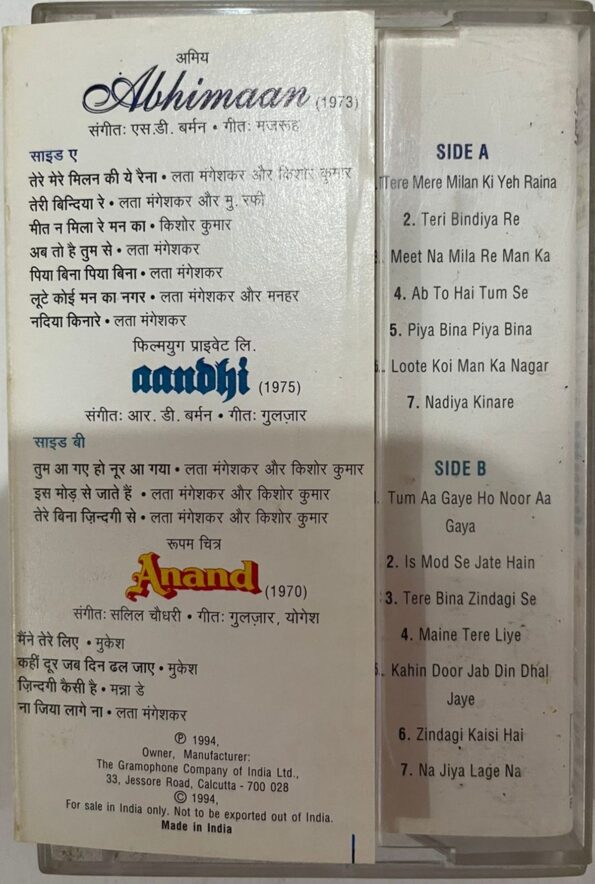 अमिय
Abhimaan (1973)
संगीतः एस.डी. बर्मन • गीतः मजरूह
साइड ए
तेरे मेरे मिलन की ये रैना • लता मंगेशकर और किशोर कुमार
तेरी बिन्दिया रे • लता मंगेशकर और मु. रफी
मीत न मिला रे मन का • किशोर कुमार
अब तो है तुम से • लता मंगेशकर
पिया बिना पिया बिना • लता मंगेशकर
लूटे कोई मन का नगर • लता मंगेशकर और मनहर
नदिया किनारे • लता मंगेशकर
फिल्मयुग प्राइवेट लि.
aandhi (1975)
संगीतः आर. डी. बर्मन • गीतः गुलज़ार
साइड बी
तुम आ गए हो नूर आ गया • लता मंगेशकर और किशोर कुमार
इस मोड़ से जाते हैं • लता मंगेशकर और किशोर कुमार
तेरे बिना ज़िन्दगी से • लता मंगेशकर और किशोर कुमार
रूपम चित्र
Anand (1970)
संगीतः सलिल चौधरी • गीतः गुलज़ार, योगेश
मैंने तेरे लिए • मुकेश
कहीं दूर जब दिन ढल जाए • मुकेश
ज़िन्दगी कैसी है • मन्ना डे
ना जिया लागे ना • लता मंगेशकर
℗ 1994,
Owner, Manufacturer:
The Gramophone Company of India Ltd.,
33, Jessore Road, Calcutta - 700 028
© 1994,
For sale in India only. Not to be exported out of India.
Made in India
SIDE A
Tere Mere Milan Ki Yeh Raina
2. Teri Bindiya Re
Meet Na Mila Re Man Ka
4. Ab To Hai Tum Se
5. Piya Bina Piya Bina
Loote Koi Man Ka Nagar
7. Nadiya Kinare
SIDE B
Tum Aa Gaye Ho Noor Aa
Gaya
2. Is Mod Se Jate Hain
3. Tere Bina Zindagi Se
4. Maine Tere Liye
Kahin Door Jab Din Dhal
Jaye
6. Zindagi Kaisi Hai
7. Na Jiya Lage Na